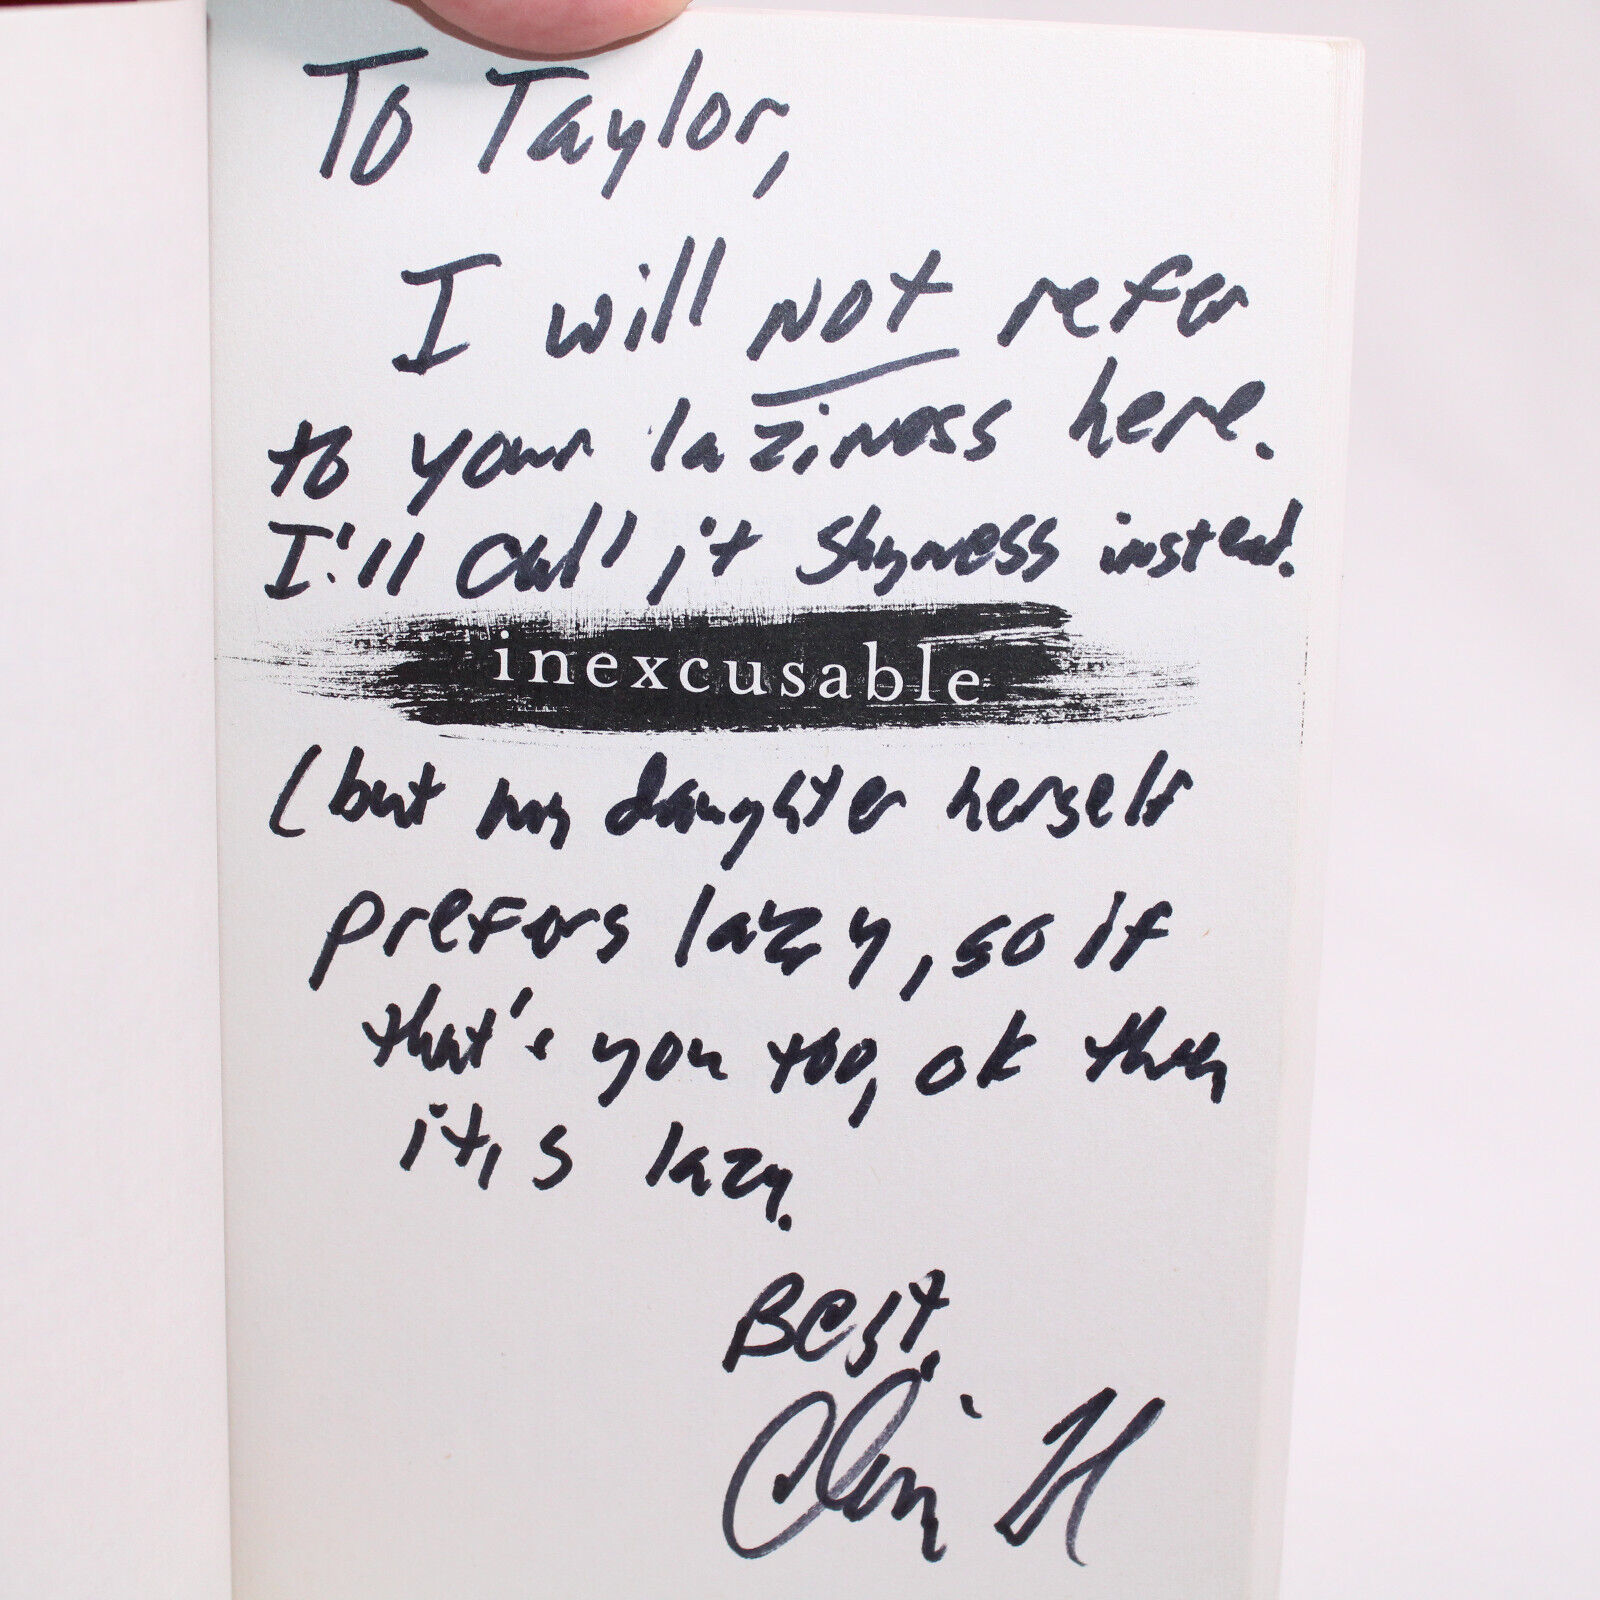 To Taylor,
I will NOT refer
to your laziness here.
I'll call it shyness instead.
inexcusable
(but my daughter herself
prefers lazy, so if
that's you too, ok then
it's lazy.
Best,